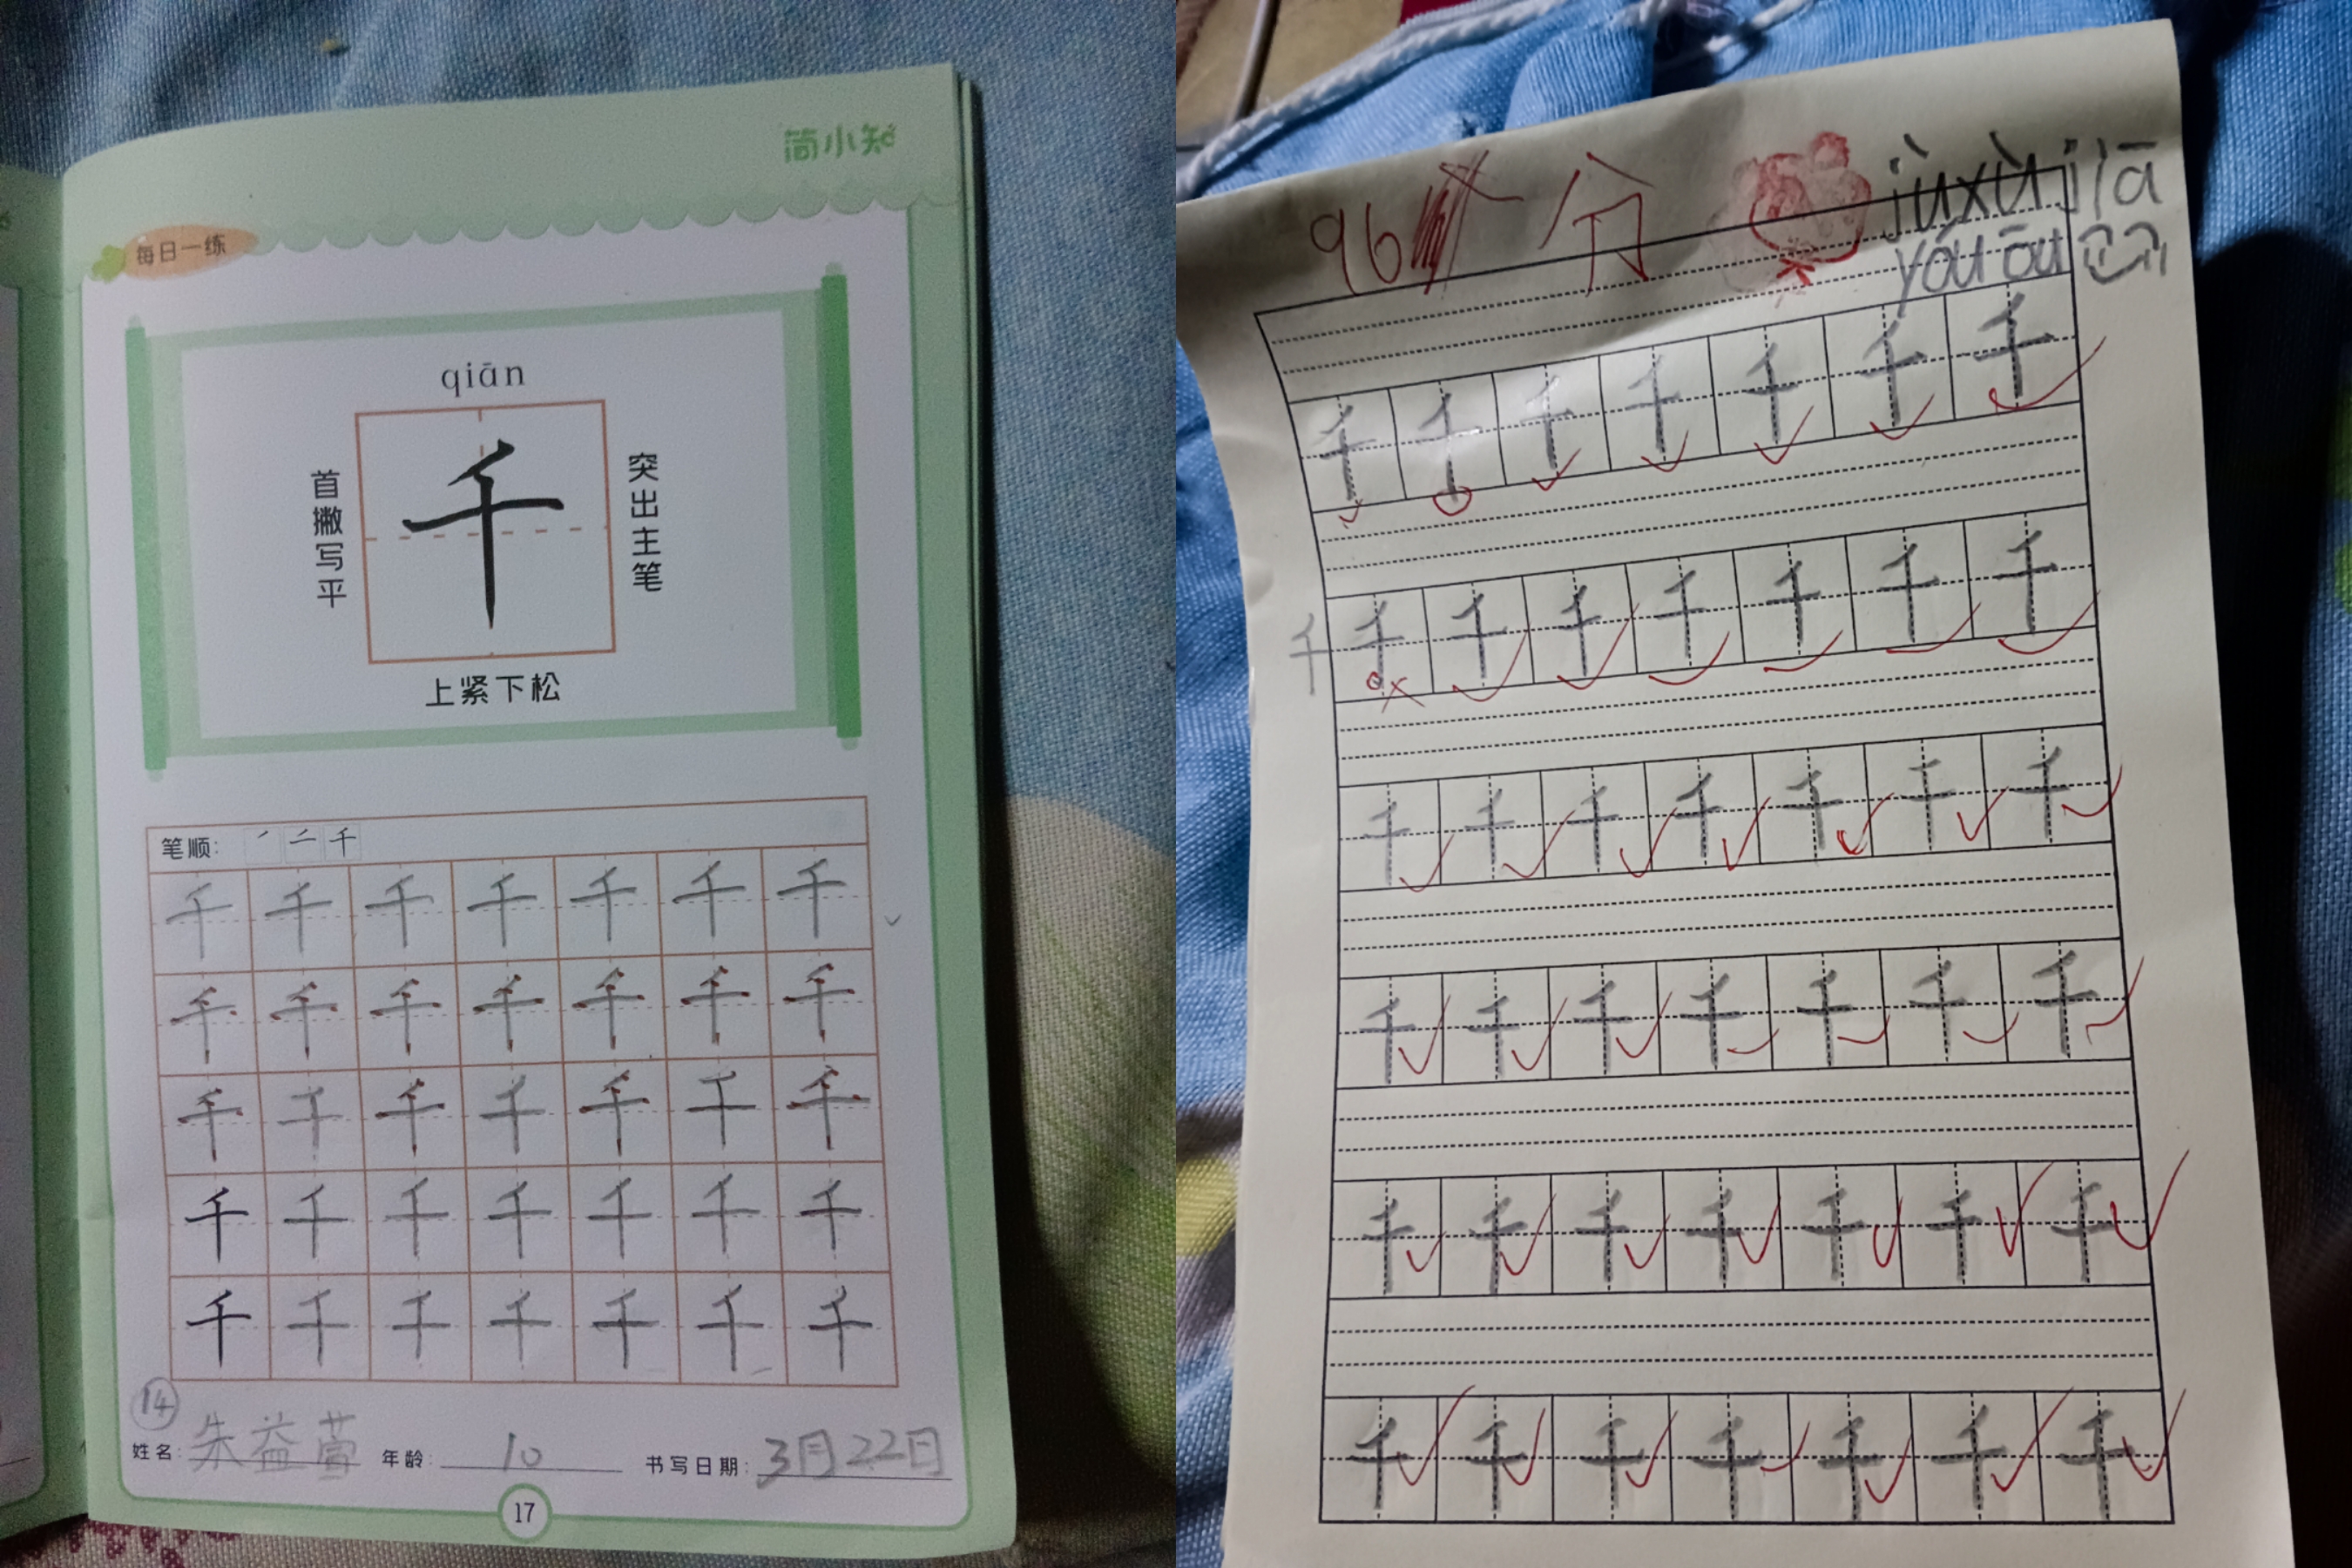 简小知
每日一练
qiān
千
首撇写平
突出主笔
上紧下松
笔顺: ノ 二 千
千 千 千 千 千 千 千
千 千 千 千 千 千 千
千 千 千 千 千 千 千
千 千 千 千 千 千 千
千 千 千 千 千 千 千
14
姓名: 朱益萱 年龄: 10 书写日期: 3月22日
17
96 分 jùxù jiā
yóu
千 千 千 千 千 千 千
千 千 千 千 千 千 千 千
千 千 千 千 千 千 千
千 千 千 千 千 千 千
千 千 千 千 千 千 千
千 千 千 千 千 千 千